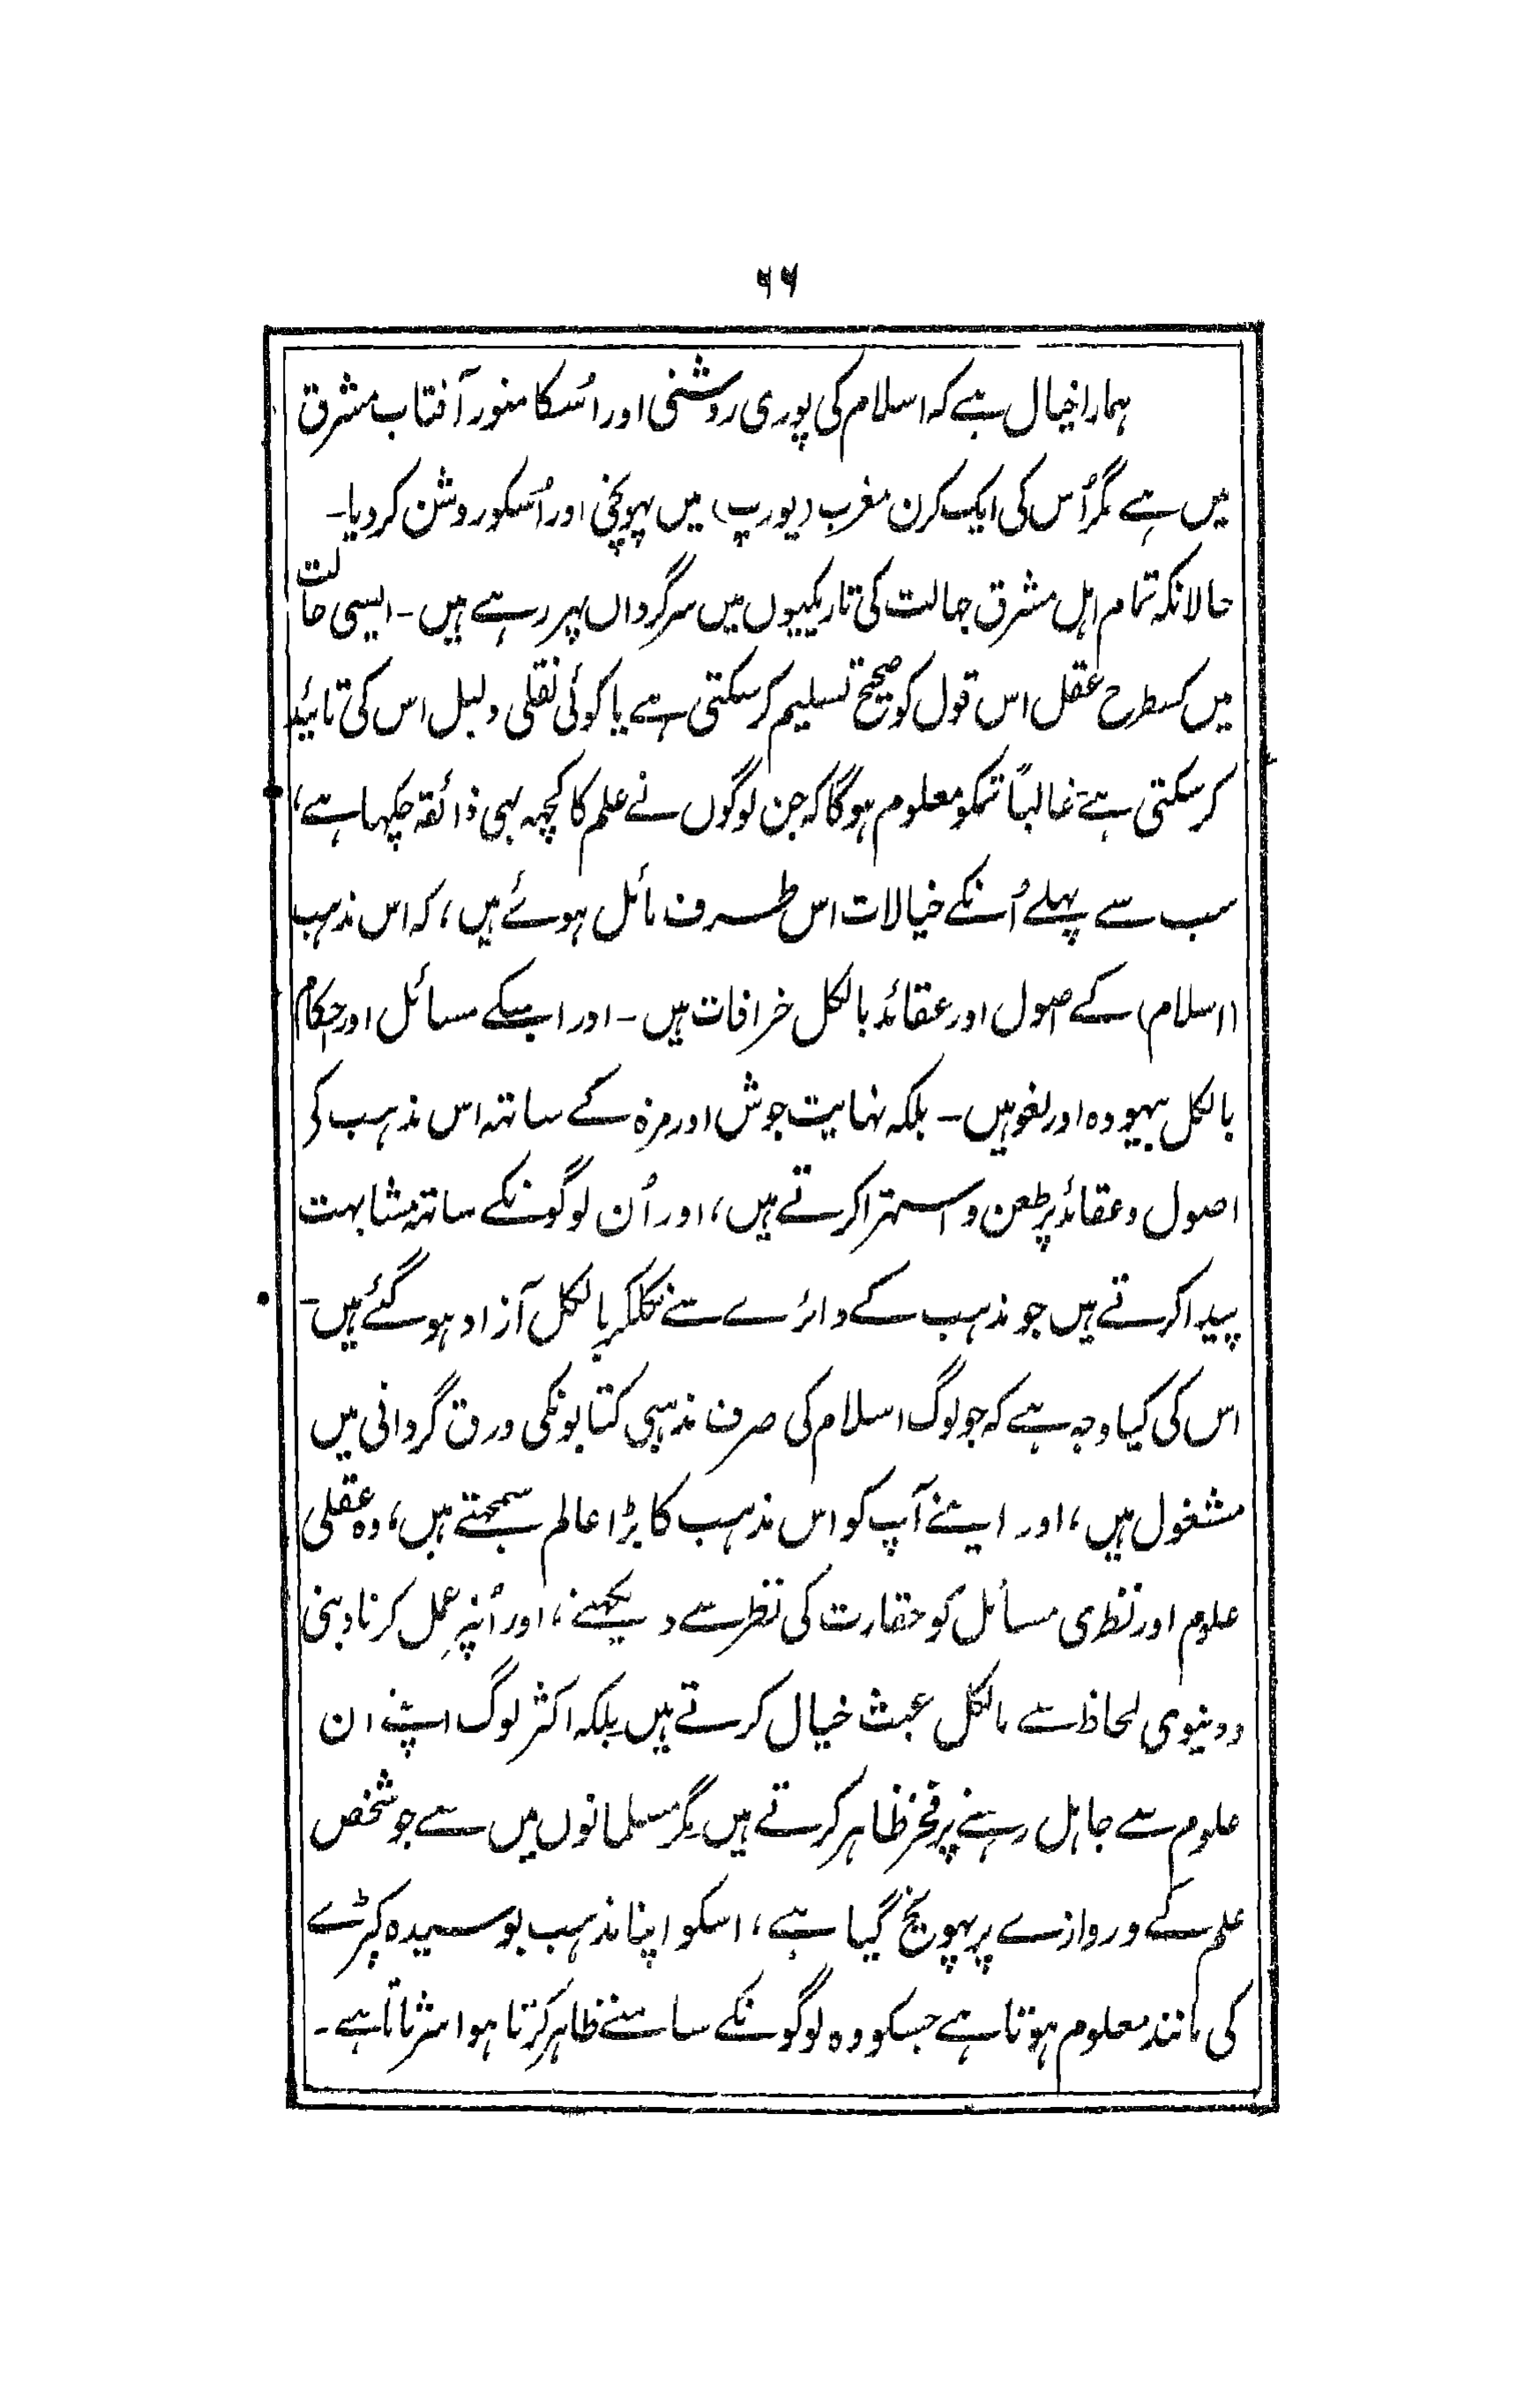 ۶۶
ہمارا خیال ہے کہ اسلام کی پوری روشنی اور اُسکا منور آفتاب مشرق
میں ہے مگر اُس کی ایک کرن مغرب (یورپ) میں پہونچی اور اُسکو روشن کر دیا۔
حالانکہ تمام اہل مشرق جہالت کی تاریکیوں میں سرگرداں پہر رہے ہیں۔ ایسی حالت
میں کسطرح عقل اس قول کو صحیح تسلیم کر سکتی ہے یا کوئی نقلی دلیل اس کی تائید
کر سکتی ہے۔ غالباً تمکو معلوم ہو گا کہ جن لوگوں نے علم کا کچہہ بہی ذائقہ چکہا ہے،
سب سے پہلے اُنکے خیالات اس طرف مائل ہوئے ہیں، کہ اس مذہب
(اسلام) کے اصول اور عقائد بالکل خرافات ہیں۔ اور اسکے مسائل اور احکام
بالکل بیہودہ اور لغو ہیں۔ بلکہ نہایت جوش اور مزہ کے ساتہہ اس مذہب کی
اصول و عقائد پر طعن و استہزا کرتے ہیں، اور اُن لوگونکے ساتہہ مشابہت
پیدا کرتے ہیں جو مذہب کے دائرے سے نکلکر بالکل آزاد ہو گئے ہیں۔
اس کی کیا وجہ ہے کہ جو لوگ اسلام کی صرف مذہبی کتابونکی ورق گردانی میں
مشغول ہیں، اور اپنے آپ کو اس مذہب کا بڑا عالم سمجہتے ہیں، وہ عقلی
علوم اور نظری مسائل کو حقارت کی نظر سے دیکہتے، اور اُنپر عمل کرنا دینی
و دنیوی لحاظ سے بالکل عبث خیال کرتے ہیں بلکہ اکثر لوگ اپنے ان
علوم سے جاہل رہنے پر فخر ظاہر کرتے ہیں مگر مسلمانوں میں سے جو شخص
علم کے دروازے پر پہونچ گیا ہے، اسکو اپنا مذہب بوسیدہ کپڑے
کی مانند معلوم ہوتا ہے جسکو وہ لوگونکے سامنے ظاہر کرتا ہوا شرماتا ہے۔